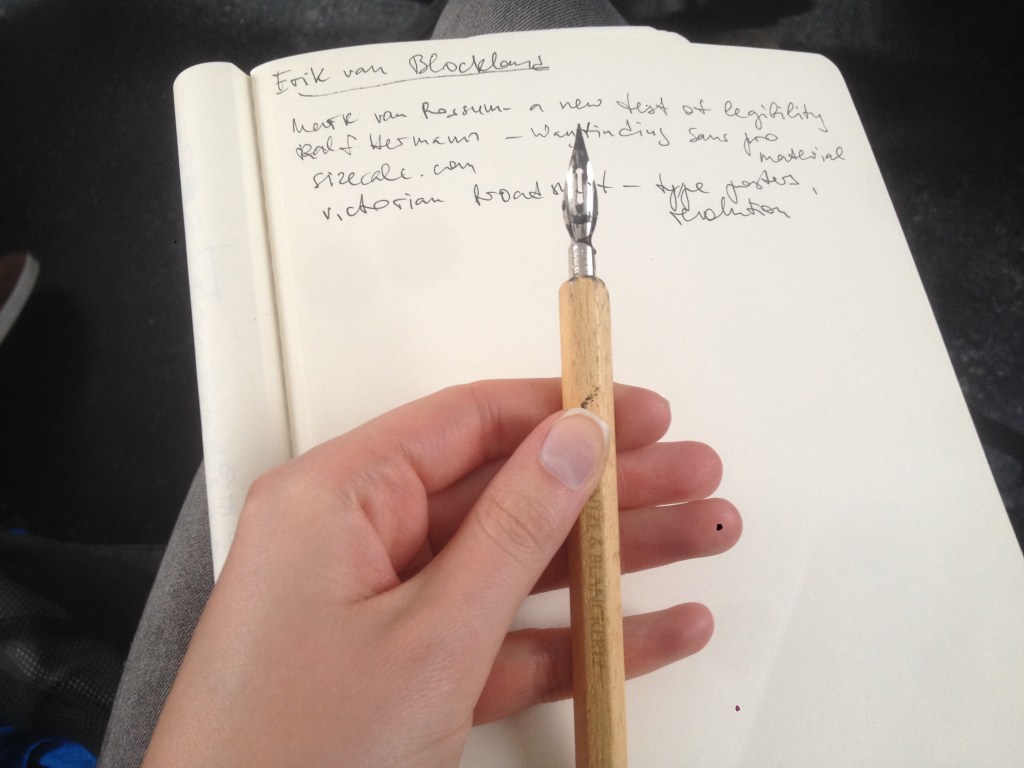 Erik van Blockland
Mark van Rossum - a new test of legibility
Ralf Hermann - Wayfinding Sans pro
material
sizecalc.com
victorian Broadsheet - type posters,
revolution
& BLANCKERTZ